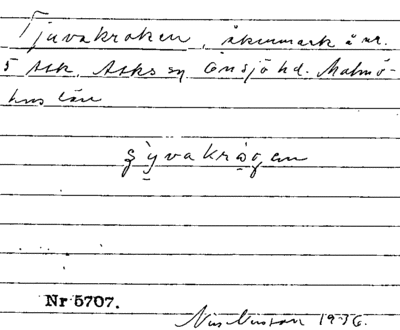 Tjuvakroken, åkermark å nr.
5 Ask, Asks sn Onsjö hd. Malmö-
hus län
Nr 5707.
1936.